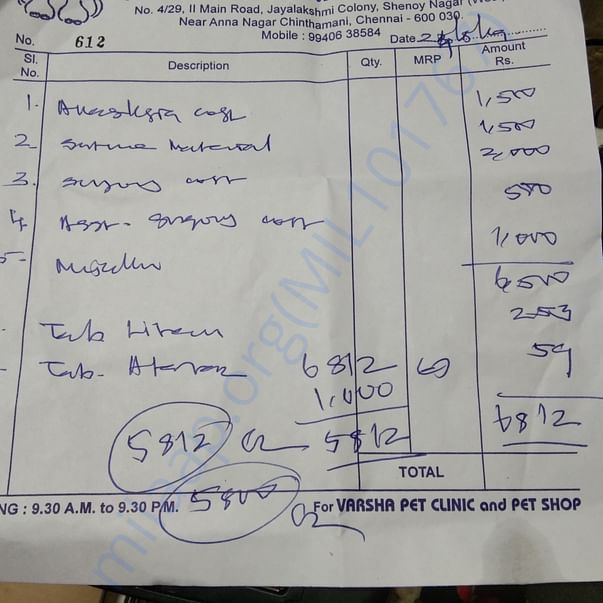 No. 4/29, II Main Road, Jayalakshmi Colony, Shenoy Nagar
Near Anna Nagar Chinthamani, Chennai - 600 030.
Mobile : 99406 38584
No. 612 Date
Sl. No. Description Qty. MRP Amount Rs.
1. cost 1,500
2 Suture Material 1,500
3. Surgery cost 2,000
4 Asst. Surgery cost 500
5- 1,000
6,500
Tab 253
Tab. 59
6812 6812
1,000
5812 5812
TOTAL
5800
NG : 9.30 A.M. to 9.30 P.M. For VARSHA PET CLINIC and PET SHOP
milaap.org(MIL101767)